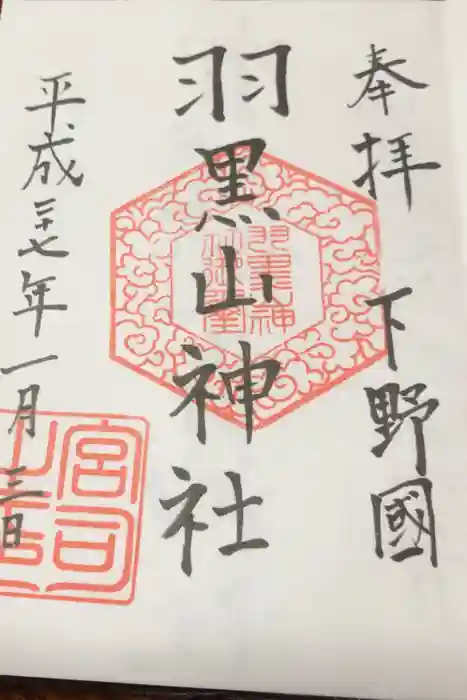 奉拝 下野國
羽黒山神社
平成二十七年一月三日
宮司